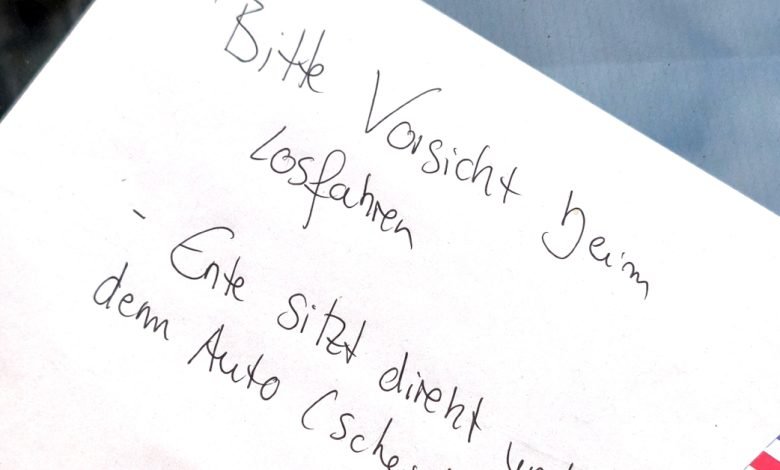 Bitte Vorsicht beim
Losfahren
- Ente sitzt direkt
dem Auto (sche